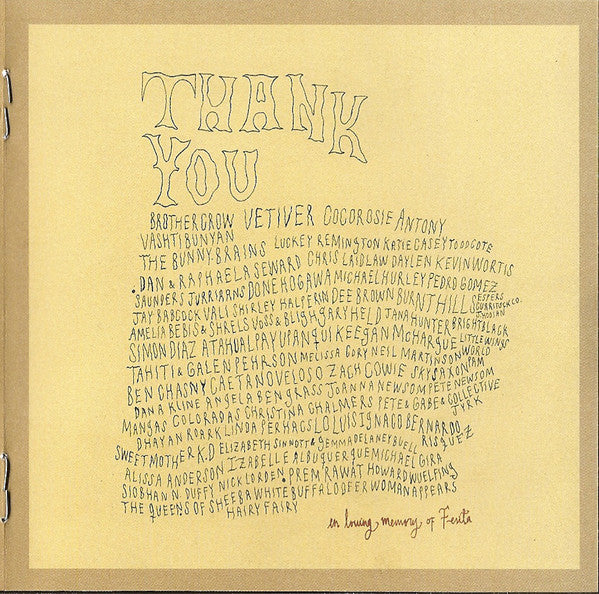 THANK
YOU
BROTHER CROW VETIVER COCOROSIE ANTONY
VASHTI BUNYAN
THE BUNNY BRAINS LUCKEY REMINGTON KATIE CASEY TODD COTE
DAN & RAPHAELA SEWARD CHRIS LAIDLAW DAYLEN KEVIN WORTIS
SAUNDERS JURRIAANS DONE HOGAWA MICHAEL HURLEY PEDRO GOMEZ
JAY BABCOCK VALI SHIRLEY HALPERIN DEE BROWN BURNT HILLS ESPERS CURRITUCK CO.
AMELIA BEBIS & SHRELS VOSS & BLIGH GARY HELD TANA HUNTER BRIGHTBLACK
SIMON DIAZ ATAHUALPA YUPANQUI KEEGAN MCHARGUE LITTLE WINGS
TAHITI & GALEN PEHRSON MELISSA CORY NEIL MARTINSON WORLD
BEN CHASNY CAETANO VELOSO ZACH COWIE SKY SAXON PAM
DANA KLINE ANGELA BENGRASS JOANNA NEWSOM PETE NEWSOM
MANGAS COLORADAS CHRISTINA CHALMERS PETE & GABE & COLLECTIVE
DHAYAN ROARK LINDA PERHACS LO LUIS IGNACO BERNARDO JYRK
SWEET MOTHER K.D ELIZABETH SINNOTT & GEMMA DELANEY BUELL RISQUEZ
ALISSA ANDERSON IZABELLE ALBUQUERQUE MICHAEL GIRA
SIOBHAN N. DUFFY NICK LORDEN. PREM RAWAT HOWARD WUELFING
THE QUEENS OF SHEEBA WHITE BUFFALO DEER WOMAN APPEARS
HAIRY FAIRY
in loving memory of Fenta